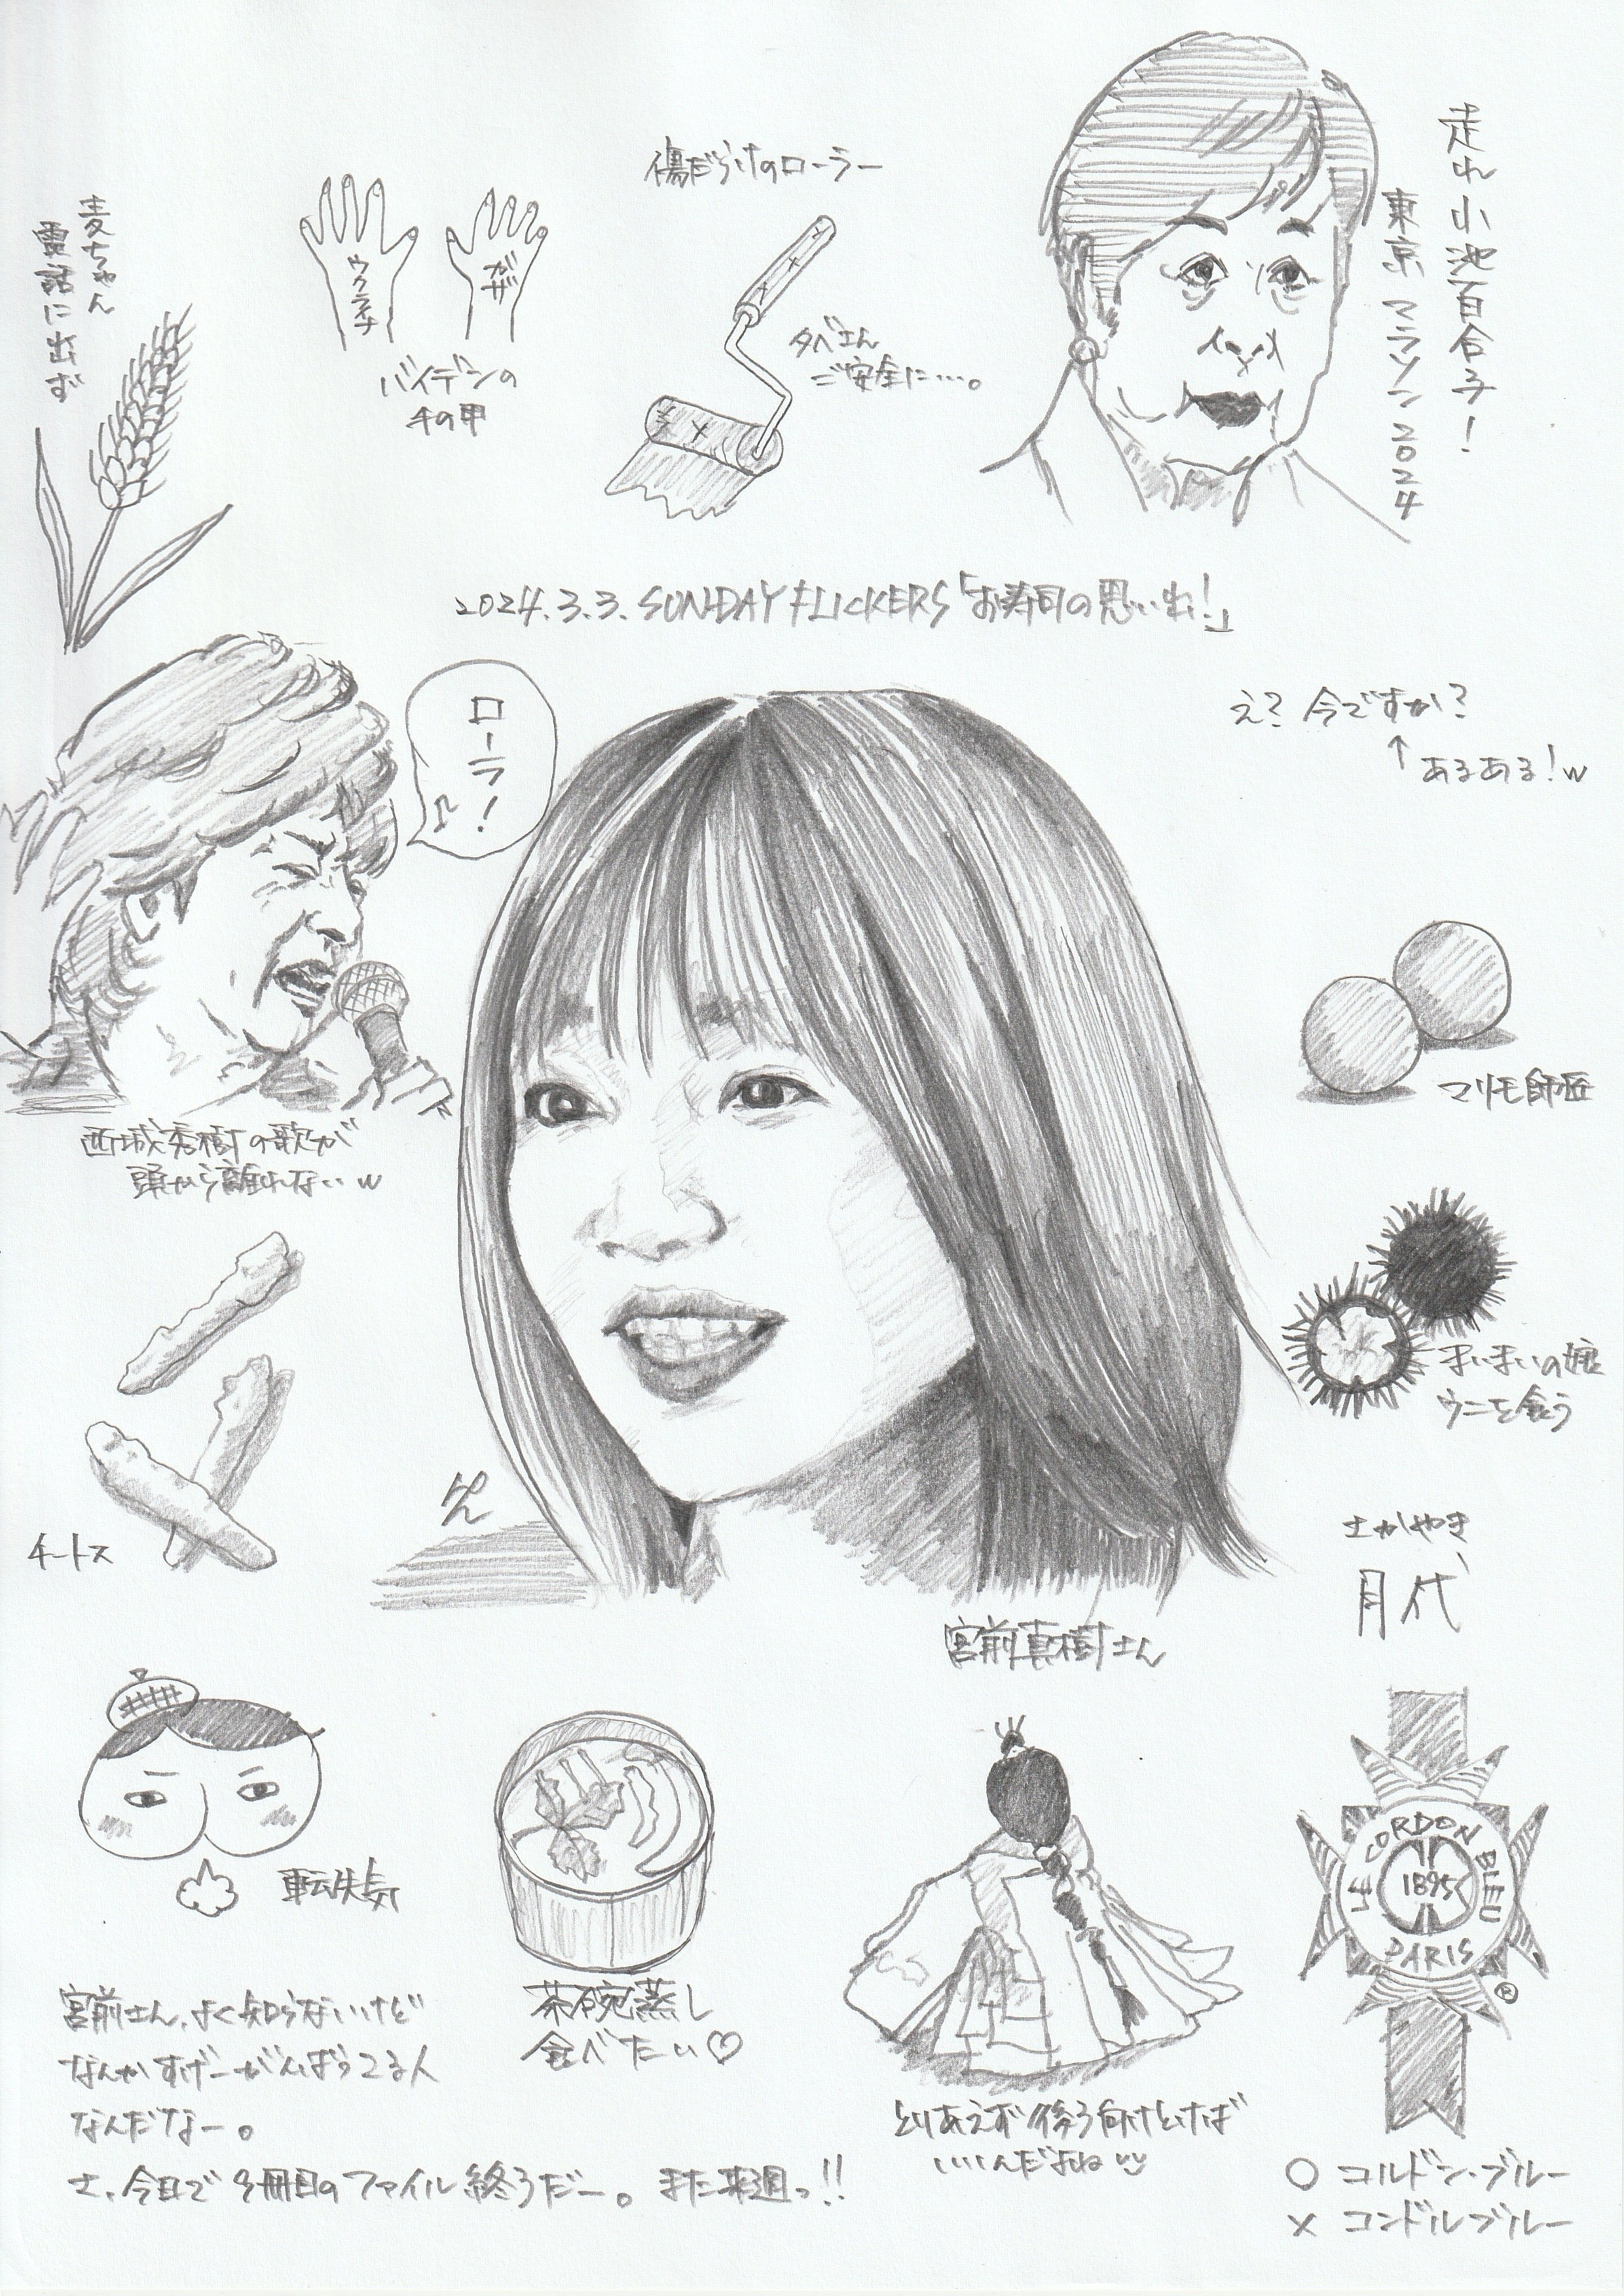 走れ小池百合子！
東京マラソン2024
傷だらけのローラー
タベさん
ご安全に…。
ウクライナ
ガザ
バイデンの
手の甲
麦ちゃん
電話に出ず
2024.3.3. SUNDAY FLICKERS「お寿司の思い出！」
ローラ！♪
え？今ですか？
↑あるある！w
西城秀樹の歌が
頭から離れないw
マリモ師匠
まいまいの娘
ウニを食う
チートス
さかやき
月代
宮前真樹さん
転失気
茶碗蒸し
食べたい♡
とりあえず後ろ向けとけば
いいんだよね
LE CORDON BLEU
1895
PARIS
®
○ コルドン・ブルー
× コンドルブルー
宮前さん、よく知らないけど
なんかすげーがんばってる人
なんだなー。
さ、今日で9冊目のファイル終うだー。また来週っ!!